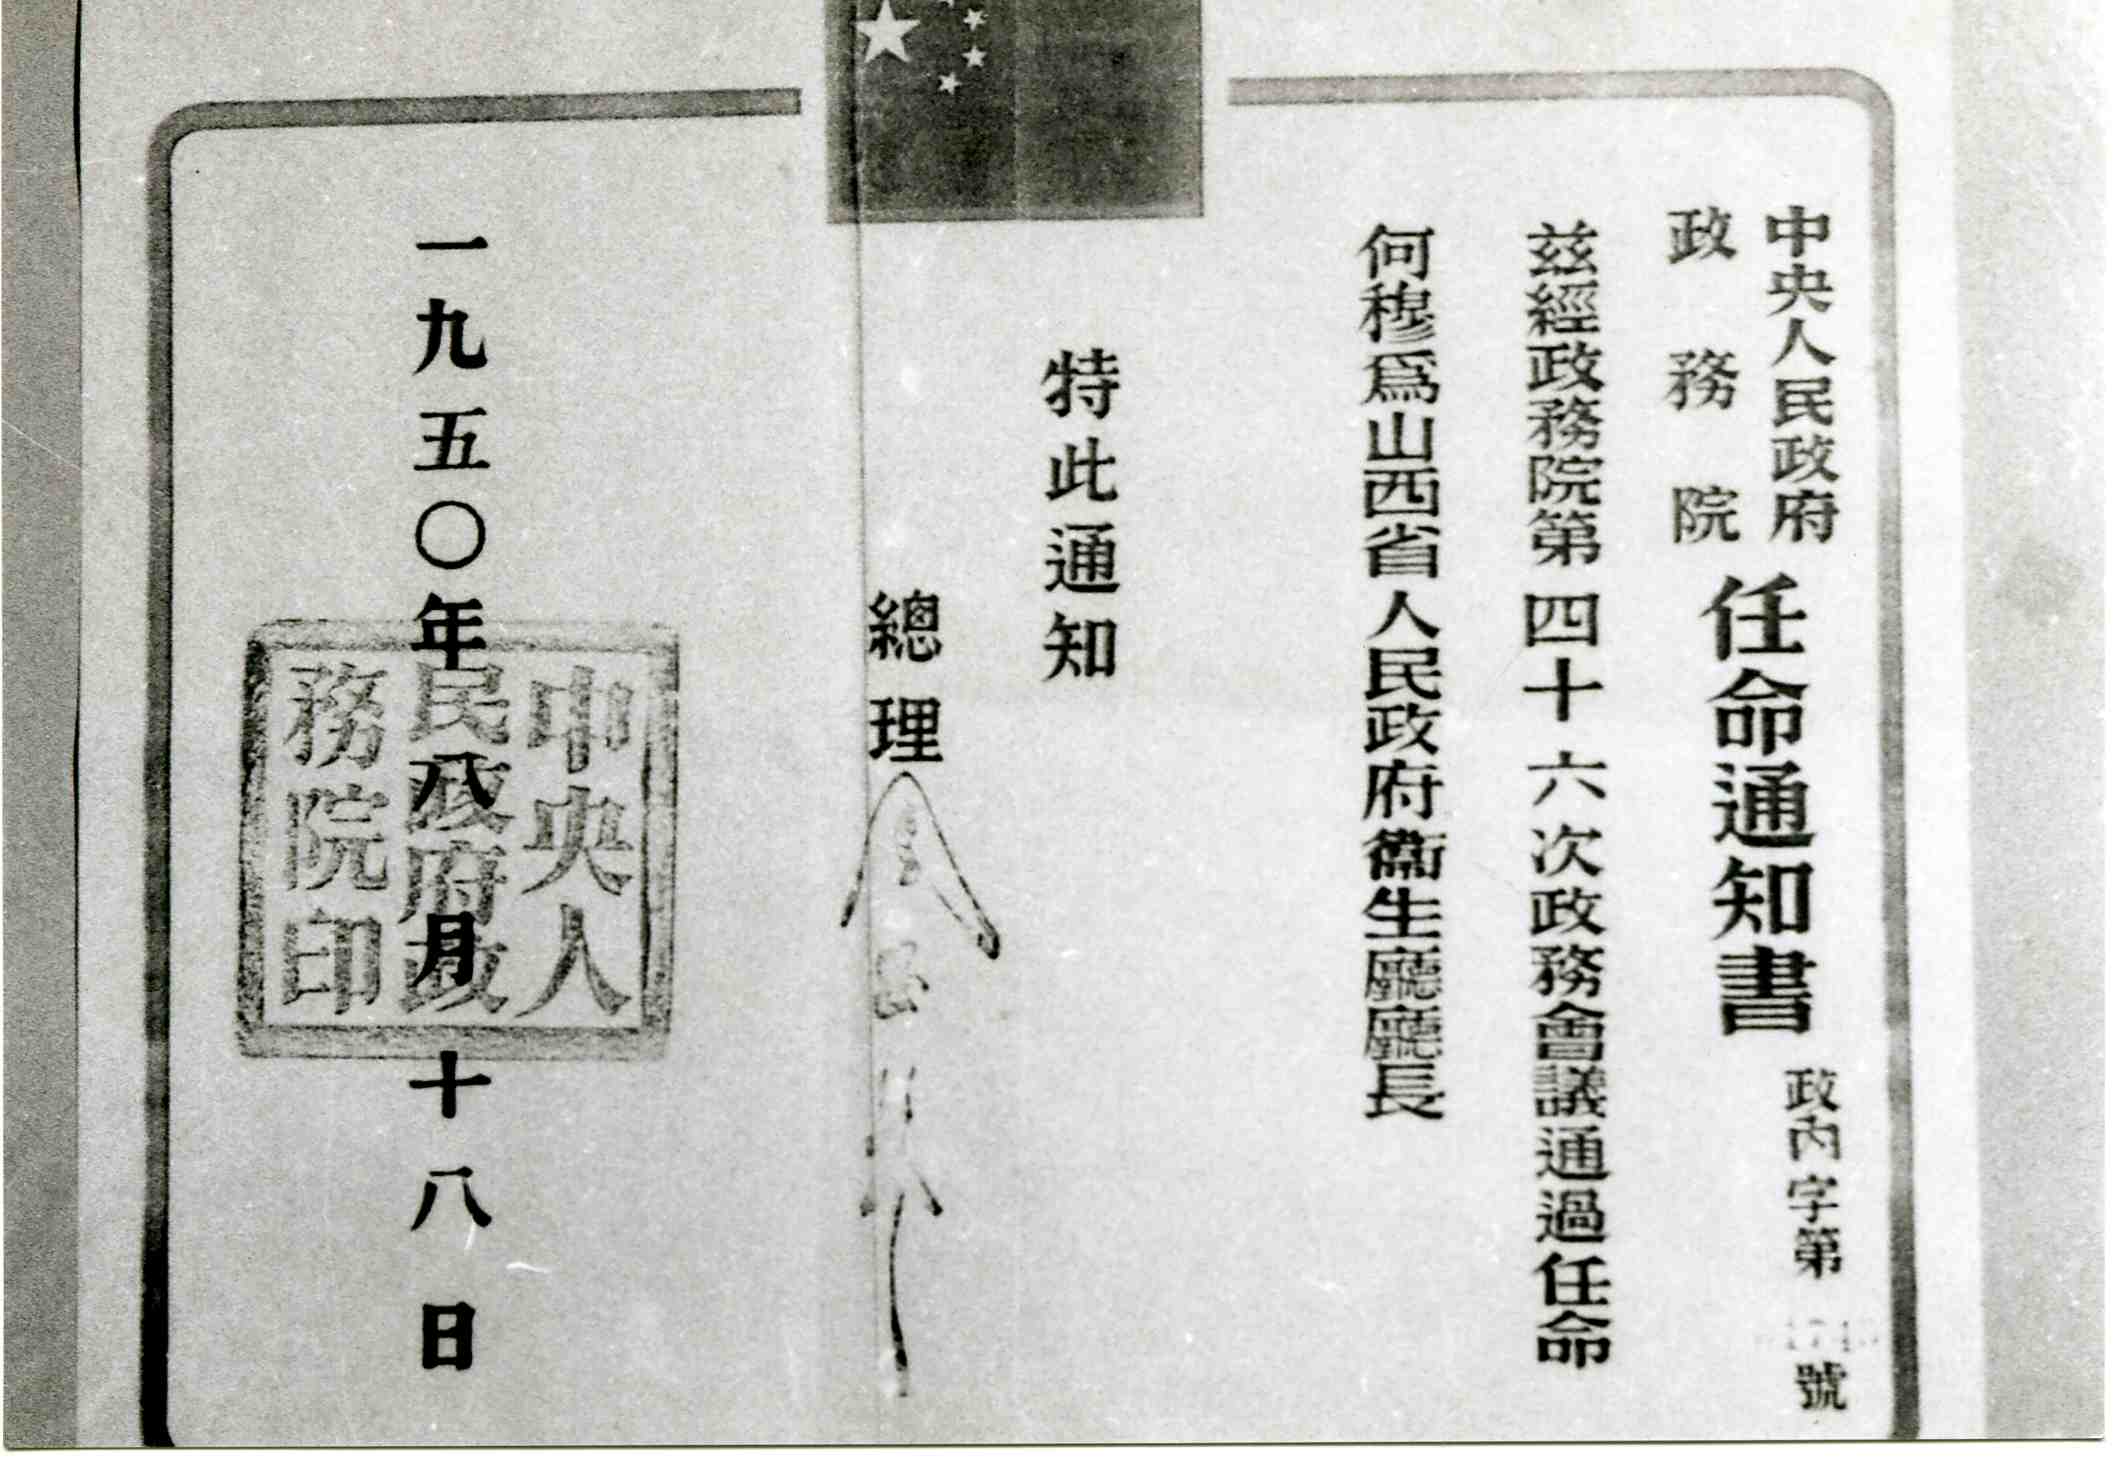 中央人民政府
政務院
任命通知書
政內字第號
茲經政務院第四十六次政務會議通過任命
何穆爲山西省人民政府衞生廳廳長
特此通知
總理
一九五〇年八月十八日
中央人
民政府政
務院印